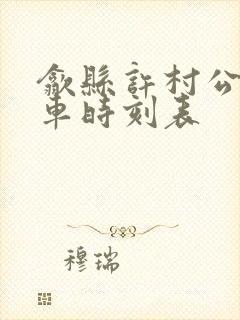 歙縣許村公
車時刻表
穆瑞